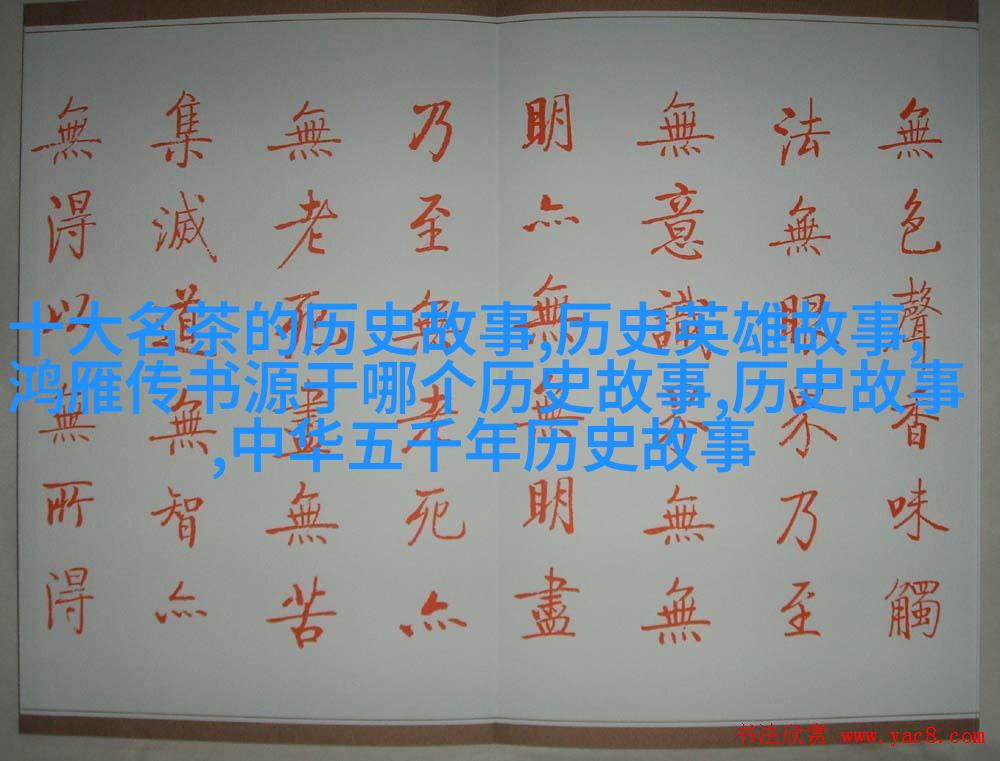 無色聲香味觸
法無眼界乃至
無意識界無無
明亦無無明盡
乃至無老死亦
無老死盡無苦
集滅道無智亦
無得以無所得
十大名茶的历史故事,历史英雄故事,
鸿雁传书源于哪个历史故事,历史故事
,中华五千年历史故事
书法欣赏 www.yac8.com